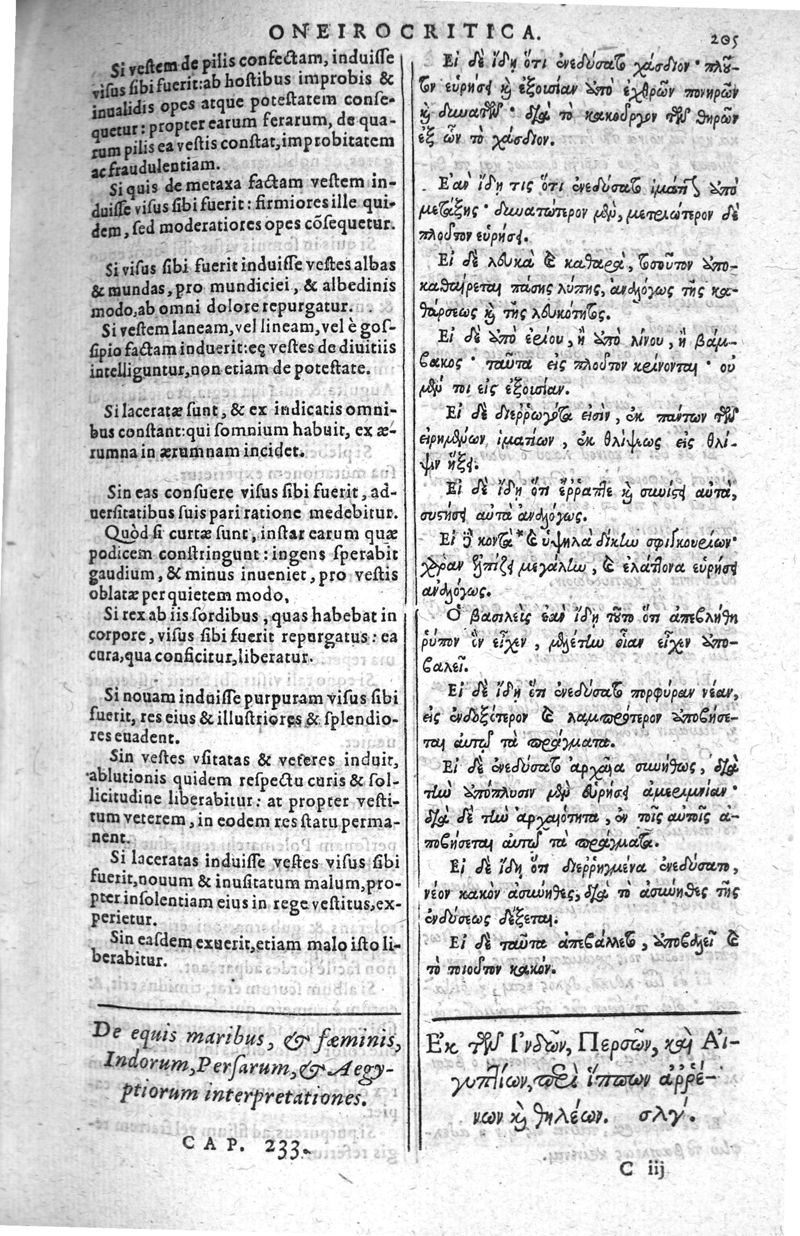 ONEIROCRITICA. 205
Si vestem de pilis confectam, induisse
visus sibi fuerit: ab hostibus improbis &
inualidis opes atque potestatem conse-
quetur: propter earum ferarum, de qua-
rum pilis ea vestis constat, improbitatem
ac fraudulentiam.
Si quis de metaxa factam vestem in-
duisse visus sibi fuerit: firmiores ille qui-
dem, sed moderatiores opes cõsequetur.
Si visus sibi fuerit induisse vestes albas
& mundas, pro mundiciei, & albedinis
modo, ab omni dolore repurgatur.
Si vestem laneam, vel lineam, vel è gos-
sipio factam induerit: eę vestes de diuitiis
intelliguntur, non etiam de potestate.
Si laceratæ sunt, & ex indicatis omni-
bus constant: qui somnium habuit, ex æ-
rumna in ærumnam incidet.
Sin eas consuere visus sibi fuerit, ad-
uersitatibus suis pari ratione medebitur.
Quòd si curtæ sunt, instar earum quæ
podicem constringunt: ingens sperabit
gaudium, & minus inueniet, pro vestis
oblatæ per quietem modo.
Si rex ab iis sordibus, quas habebat in
corpore, visus sibi fuerit repurgatus: ea
cura, qua conficitur, liberatur.
Si nouam induisse purpuram visus sibi
fuerit, res eius & illustriores & splendio-
res euadent.
Sin vestes vsitatas & veteres induit,
ablutionis quidem respectu curis & sol-
licitudine liberabitur: at propter vesti-
tum veterem, in eodem res statu perma-
nent.
Si laceratas induisse vestes visus sibi
fuerit, nouum & inusitatum malum, pro-
pter insolentiam eius in rege vestitus, ex-
perietur.
Sin easdem exuerit, etiam malo isto li-
berabitur.
De equis maribus, & fæminis,
Indorum, Persarum, & Aegy-
ptiorum interpretationes.
CAP. 233.
Εἰ δὲ ἴδῃ ὅτι ἐνεδύσατο χάσδιον· πλοῦ-
τον εὑρήσει καὶ ἐξουσίαν ἀπὸ ἐχθρῶν πονηρῶν
καὶ δυνατῶν· διὰ τὸ κακοῦργον τῶν θηρῶν
ἐξ ὧν τὸ χάσδιον.
Ἐὰν ἴδῃ τις ὅτι ἐνεδύσατο ἱμάτιον ἀπὸ
μετάξης· δυνατώτερον μὲν, μετριώτερον δὲ
πλοῦτον εὑρήσει.
Εἰ δὲ λευκὰ καὶ καθαρὰ, τοσοῦτον ἀπο-
καθαίρεται πάσης λύπης, ἀναλόγως τῆς κα-
θάρσεως καὶ τῆς λευκότητος.
Εἰ δὲ ἀπὸ ἐρίου, ἢ ἀπὸ λίνου, ἢ βάμ-
βακος· ταῦτα εἰς πλοῦτον κρίνονται· οὐ
μέν τοι εἰς ἐξουσίαν.
Εἰ δὲ διεῤῥωγότα εἰσὶν, ἐκ πάντων τῶν
εἰρημένων ἱματίων, ἐκ θλίψεως εἰς θλί-
ψιν ἥξει.
Εἰ δὲ ἴδῃ ὅτι ἔῤῥαπτε καὶ αὐτά,
αὐτὰ ἀναλόγως.
Εἰ δὲ κοντὰ * καὶ ὑψηλὰ δίκην
χαρὰν ἐλπίζει μεγάλην, καὶ ἐλάττονα εὑρήσει
ἀναλόγως.
Ὁ βασιλεὺς ἐὰν ἴδῃ τοῦτο ὅτι ἀπεβλήθη
ῥύπον ὃν εἶχεν, οἵαν εἶχεν ἀπο-
βαλεῖ.
Εἰ δὲ ἴδῃ ὅτι ἐνεδύσατο πορφύραν νέαν,
εἰς ἐνδοξότερον καὶ λαμπρότερον ἀποβήσε-
ται αὐτῷ τὰ πράγματα.
Εἰ δὲ ἐνεδύσατο ἀρχαῖα συνήθως, διὰ
τὴν ἀπόπλυσιν μὲν εὑρήσει ἀμεριμνίαν·
διὰ δὲ τὴν ἀρχαιότητα, ἐν τοῖς αὐτοῖς ἀ-
ποβήσεται αὐτῷ τὰ πράγματα.
Εἰ δὲ ἴδῃ ὅτι διεῤῥηγμένα ἐνεδύσατο,
νέον κακὸν ἀσύνηθες, διὰ τὸ ἀσύνηθες τῆς
ἐνδύσεως δέξεται.
Εἰ δὲ ταῦτα ἀπεβάλλετο, ἀποβαλεῖ καὶ
τὸ τοιοῦτον κακόν.
Ἐκ τῶν Ἰνδῶν, Περσῶν, καὶ Αἰ-
γυπτίων, περὶ ἵππων ἀῤῥέ-
νων καὶ θηλέων. σλγʹ.
C iij